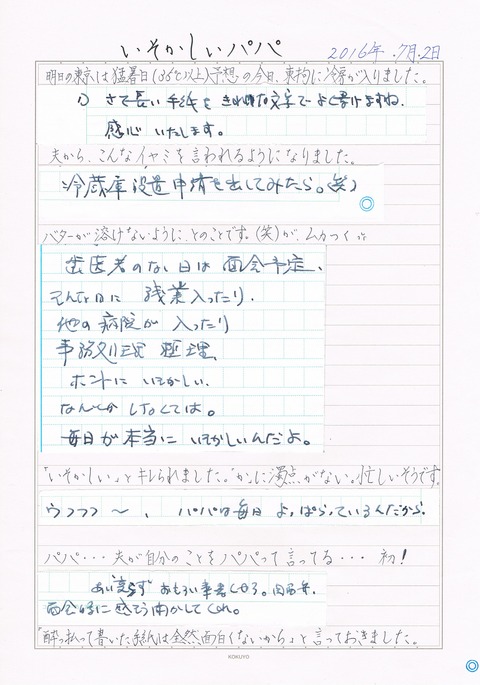 いそかしいパパ
2016年.7月.2日
明日の東京は猛暑日(35℃以上)予想の今日、東拘に冷房が入りました。
1) さて長い手紙を きれいな文字でよく書けますね.
感心 いたします。
夫から、こんなイヤミを言われるようになりました。
冷蔵庫設置申請を出してみたら。(笑)
バターが溶けないように、とのことです。(笑)が、ムカつく
歯医者のない日は 面会予定、
そんな日に 残業入ったり.
他の病院が入ったり
事務処理 整理、
ホントに いそかしい.
なんとかしなくては。
毎日が本当に いそかしいんだよ。
「いそかしい」とキレられました。「か」に濁点がない。忙しいそうです。
ウフフフ〜、パパは毎日 よっぱらっているんだから.
パパ・・・夫が自分のことをパパって言ってる・・・ 初!
あい変らず おもしろい事書くね。
面会時に 感そう聞かしてくれ。
「酔っ払って書いた手紙は全然面白くないから」と言っておきました。
KOKUYO